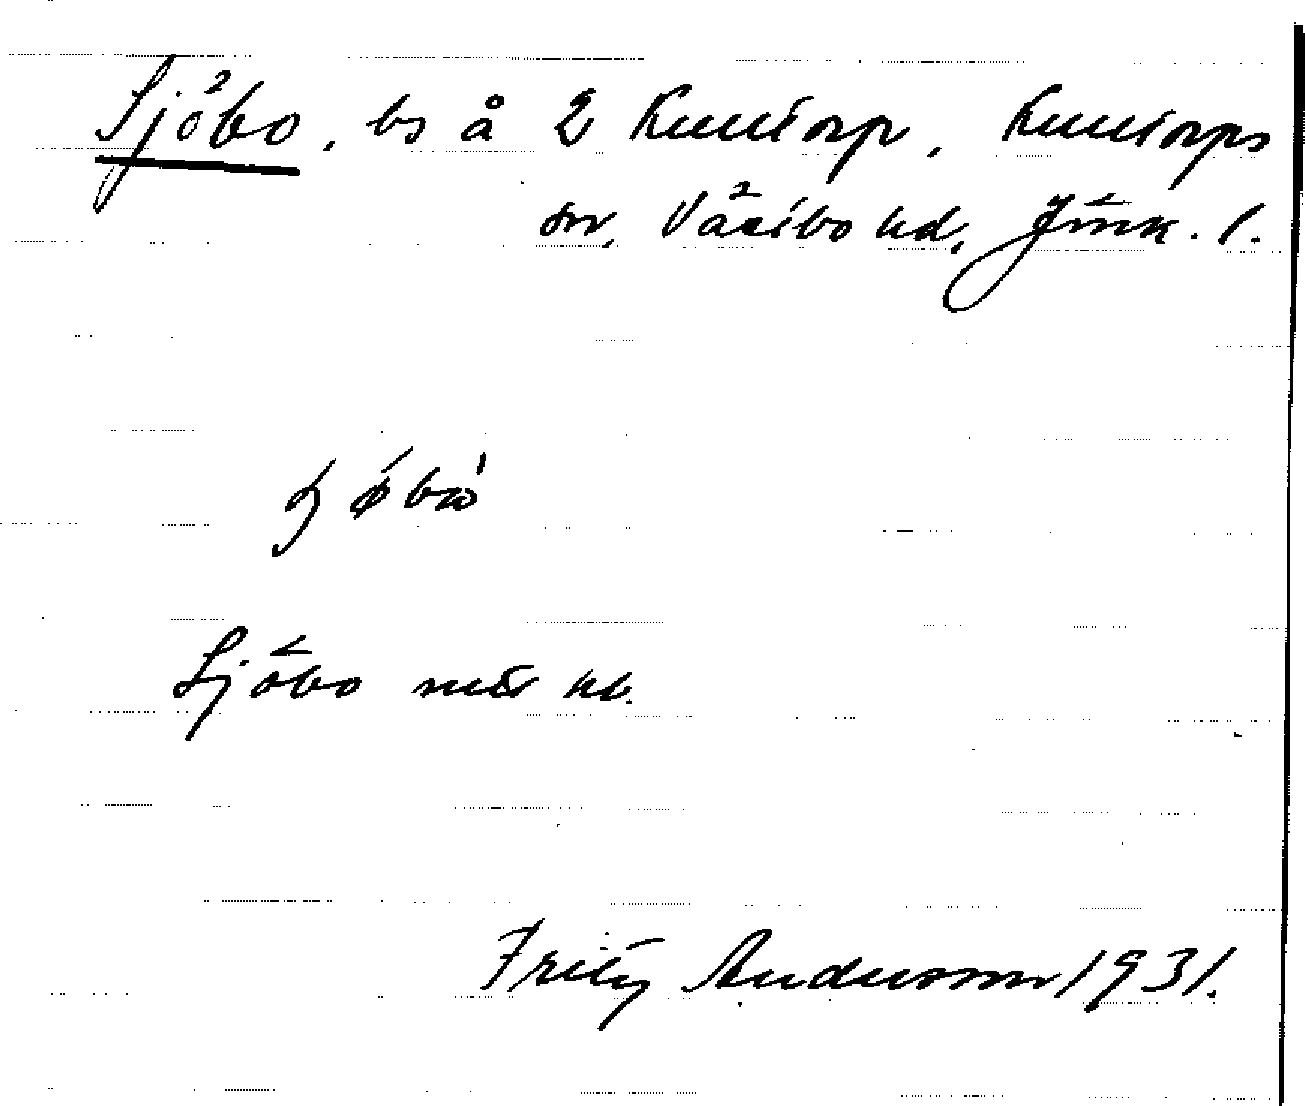 Sjöbo, bs å 2 Kulltorp, Kulltorps
sn, Västbo hd, Jönk. l.
Sjöbo
Fritz Andersson 1931.